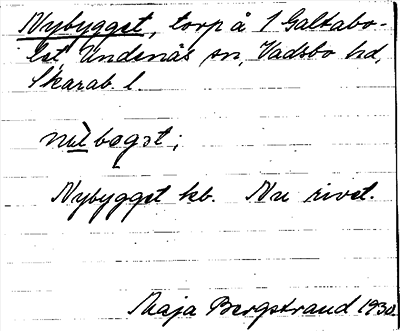 Nybygget, torp å 1 Galtabo-
let, Undenäs sn, Vadsbo hd,
Skarab. l.
bogst;
Nybygget kb. Nu rivet.
Maja Bergstrand 1930.